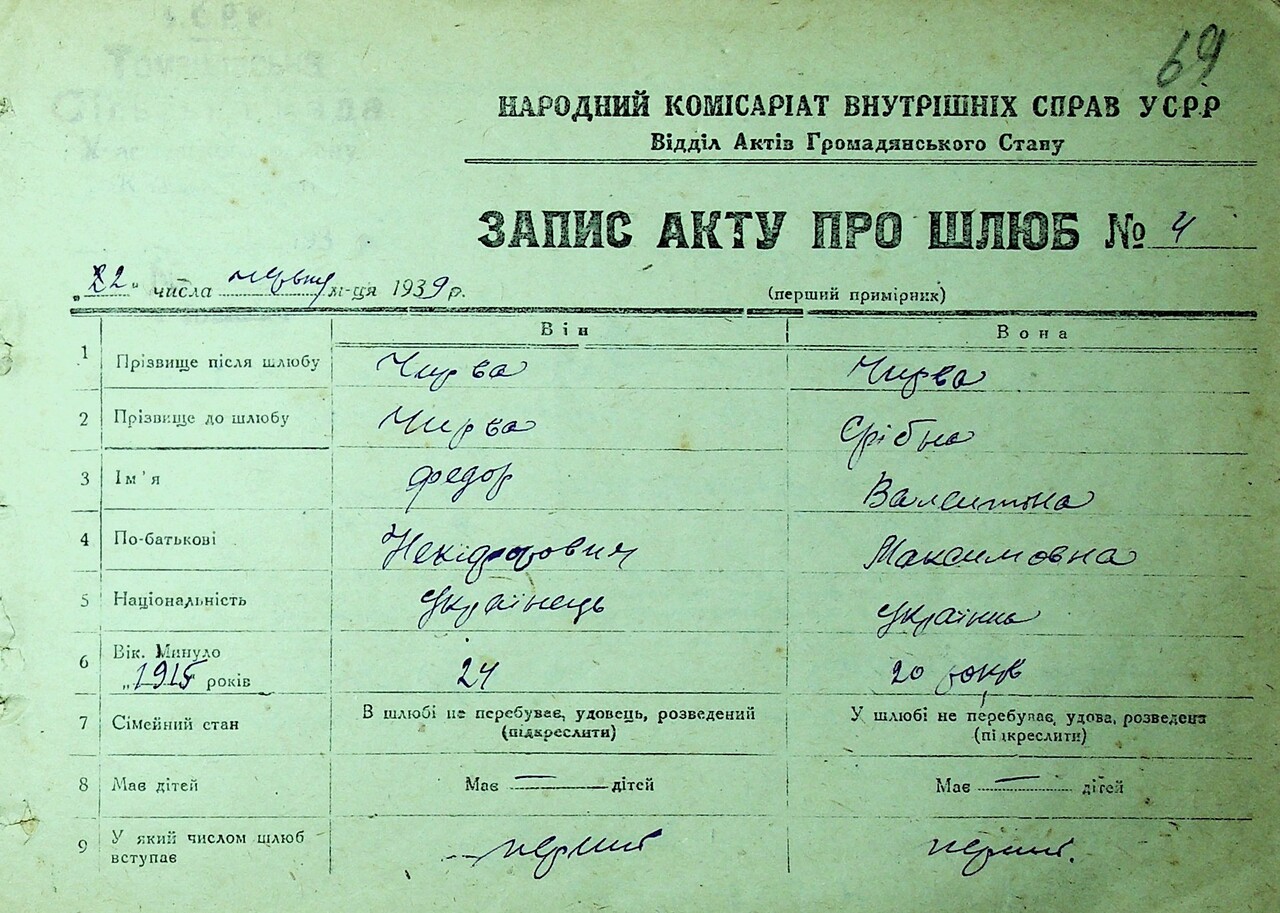 69
НАРОДНИЙ КОМІСАРІАТ ВНУТРІШНІХ СПРАВ УСРР
Відділ Актів Громадянського Стану
ЗАПИС АКТУ ПРО ШЛЮБ № 4
„22" числа червня м-ця 1939 р.
(перший примірник)
Він Вона
1 Прізвище після шлюбу Чирва Чирва
2 Прізвище до шлюбу Чирва Срібна
3 Ім'я Федор Валентіна
4 По-батькові Максимовна
5 Національність Українець Українка
6 Вік. Минуло 24 20 років
„1915" років
7 Сімейний стан В шлюбі не перебуває, удовець, розведений У шлюбі не перебуває, удова, розведена
(підкреслити) (підкреслити)
8 Має дітей Має — дітей Має — дітей
9 У який числом шлюб перший перший.
вступає